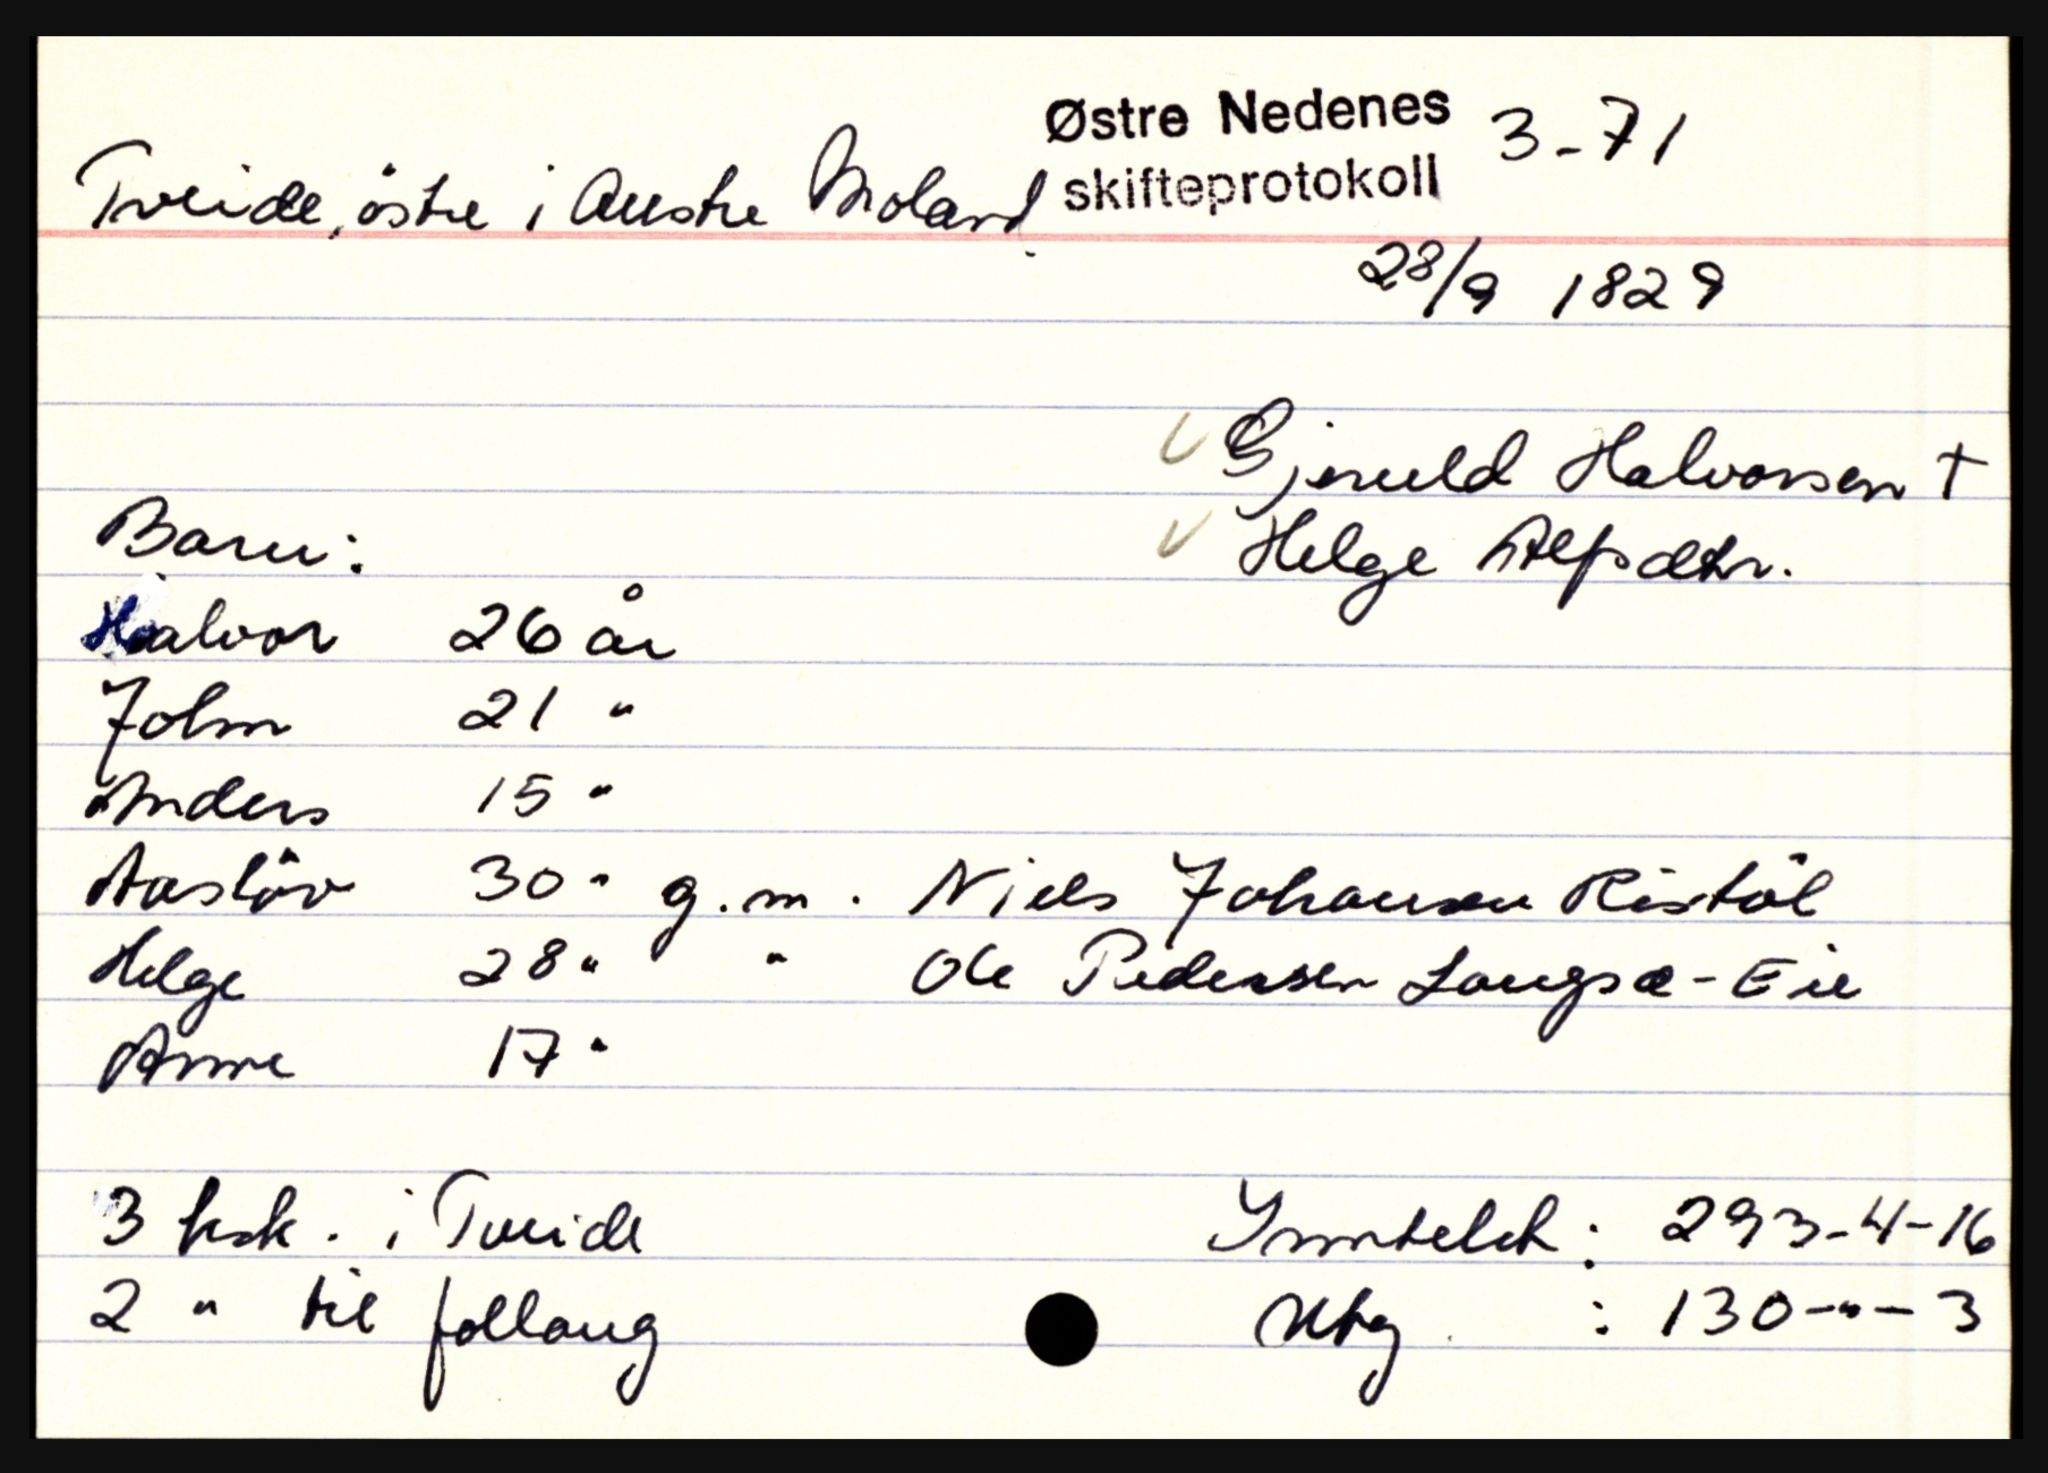 Østre Nedenes 3-71
Tveide, östre i Austre Moland skifteprotokoll
28/9 1829
Gjeruld Halvorsen †
Barn: Helge Alfsdtr.
Halvor 26 år
John 21 "
Anders 15 "
Aaslöv 30 " g.m. Niels Johansen Ristöl
Helge 28 " " Ole Pedersen Langsæ-Eie
Anne 17 "
3 hsk. i Tveide Inntekt: 293-4-16
2 " til follaug Utg : 130-"-3